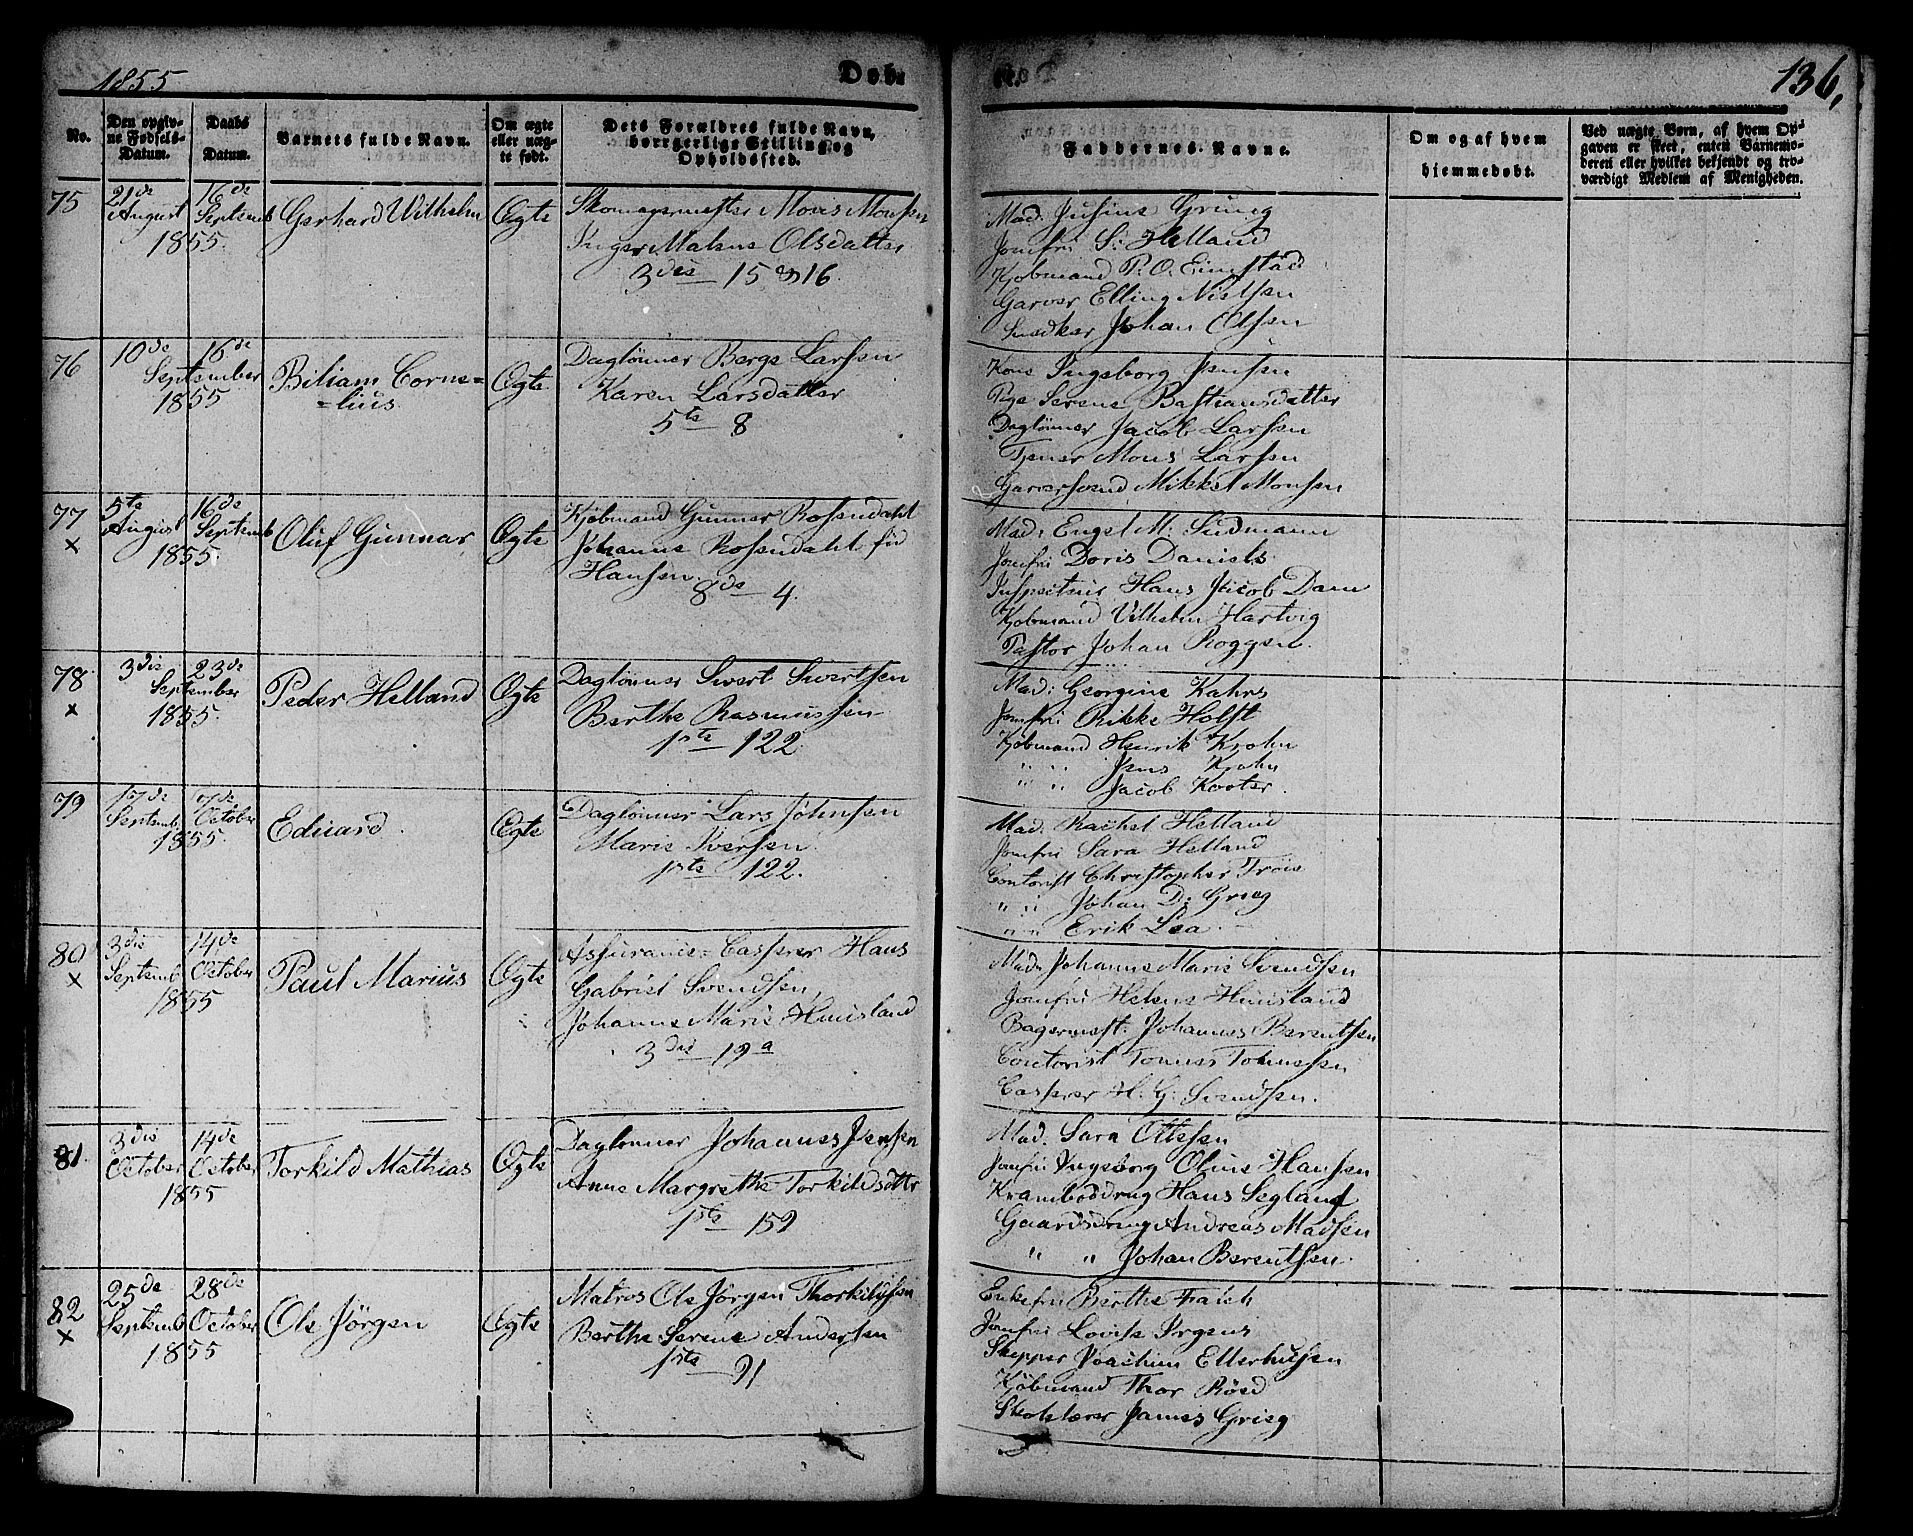 1855
Døb.
136.
No.
Den opgiv-
ne Fødsels-
Datum.
Daabs
Datum.
Barnets fulde Navn.
Om ægte
eller næg-
te født.
Dets Forældres fulde Navn,
borrgerlige Stilling og
Opholdssted.
Faddernes Navne.
Om og af hvem
hjemmedøbt.
Ved uægte Børn, af hvem Op-
gaven er skeet, enten Barnemo-
deren eller hvilket bekjendt og tro-
værdigt Medlem af Menigheden.
75
21de August
16de Septemb
1855.
Gerhard Wilhelm
Ægte
Skomagermester Mons Monsen
Inger Malene Olsdatter
3die 15 & 16.
Mad: Grieg
Jomfru S: Helland
Kjøbmand P. O. Eingstad
Garver Elling Nielsen
Snedker Johan Olsen
76
10de 16de
September
1855
Biliam Corne=
=lius.
Ægte
Daglønner Berge Larsen
Karen Larsdatter
5te 8
Kone Ingeborg Jensen
Pige Serene Bastiansdatter
Daglønner Jacob Larsen
Tjener Mons Larsen
Garversvend Mikkel Monsen
77
×
5te August
16de Septemb
1855.
Oluf Gunnar,
Ægte
Kjøbmand Gunner Rosendahl
Johanne Rosendahl fød
Hansen.
8de 4.
Mad: Engel M. Sudmann
Jomfru Doris Daniels
Inspecteur Hans Jacob Dam
Kjøbmand Vilhelm Hartvig
Pastor Johan Roggen.
78.
×
3die 23de
September
1855.
Peder Helland
Ægte
Daglønner Sivert Sivertsen
Berthe Rasmussen
1ste 122
Mad: Georgine Kahrs
Jomfru Rikke Holst
Kjøbmand Henrik Krohn
" " Jens Krohn
" " Jacob Kooter.
79
17de Septemb
7de October
1855.
Eduard.
Ægte
Daglønner Lars Johnsen
Marie Iversen.
1ste 122.
Mad. Rachel Helland
Jomfru Sara Helland
Contorist Christopher Troie
" " Johan D: Grieg
" " Erik Lea.
80
×
3die Septemb
14de October
1855
Paul Marius
Ægte
Assurance=Casserer Hans
Gabriel Svendsen,
Johanne Marie Huusland
3die 19a
Mad. Johanne Marie Svendsen
Jomfru Helene Huusland
Bagermest: Johannes Berentsen
Contorist Tomas Tomassen
Casserer H. G: Svendsen.
81.
3die October
14de October
1855
Torkild Mathias
Ægte
Daglønner Johannes Jensen
Anne Margrethe Torkildsdttr
1ste 159
Mad. Sara Ottesen
Jomfru Ingeborg Oline Hansen
Kramboddrng Hans Segland
Gaardsdrng Andreas Madsen
" " Johan Berentsen.
82
×
25de Septemb
28de October
1855
Ole Jørgen
Ægte
Matros Ole Jørgen Thorkildsen
Berthe Serene Andersen
1ste 91
Enkefru Berthe Faich
Jomfru Lovise Irgens
Skepper Joachim Ellerhusen
Kjøbmand Thor Røed
Skolelærer James Grieg